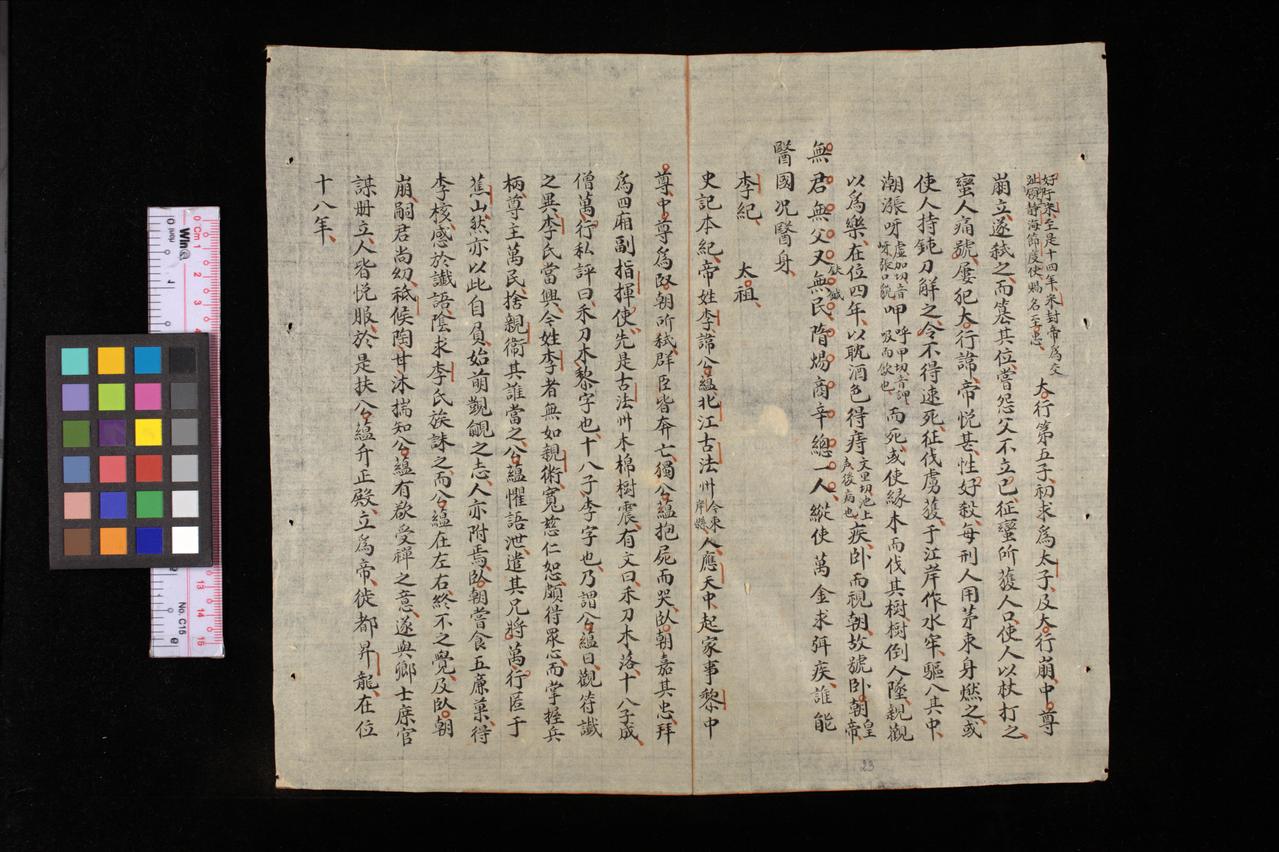 大行第五子、初求為太子、及大行崩、中尊
崩立、遂弒之、而簒其位、嘗怨父不立已、征蠻所獲人口、使人以杖打之、
蠻人痛號、屢犯大行諱、帝悦甚、性好殺、每刑人用茅束身燃之、或
使人持鈍刀解之、令不得速死、征伐虜獲、于江岸作水牢、驅入其中、
潮漲呀呷而死、或使緣木而伐其樹、樹倒人墜、親觀
以為樂、在位四年、以耽酒色得痔疾、卧而視朝、故號卧朝皇帝、
無君無父又無民、隋煬商辛總一人、縱使萬金求弭疾、誰能
醫國况醫身、
李紀、 太祖、
史記本紀、帝姓李諱公蘊、北江古法州今東岸縣人、應天中、起家事黎中
尊、中尊為卧朝所弒、群臣皆奔亡、獨公蘊抱屍而哭、卧朝嘉其忠、拜
為四廂副指揮使、先是古法州木棉樹震、有文曰、禾刀木落、十八子成、
僧萬行私評曰、禾刀木黎字也、十八子李字也、乃謂公蘊曰、觀符讖
之異、李氏當興、今姓李者、無如親衛、寬慈仁恕、頗得眾心、而掌握兵
柄、尊主萬民、捨親衛其誰當之、公蘊懼語泄、遣其兄將萬行匿于
蕉山、然亦以此自負、始萌覬覦之志、人亦附焉、卧朝嘗食五廉菓、得
李核、感於讖語、陰求李氏族誅之、而公蘊在左右、終不之覺、及卧朝
崩、嗣君尚幼、祗候陶甘沐揣知公蘊有欲受禪之意、遂與鄉士庶官
謀册立、人皆悦服、於是扶公蘊升正殿、立為帝、徙都昇龍、在位
十八年、
23
Cm 1
No. C15